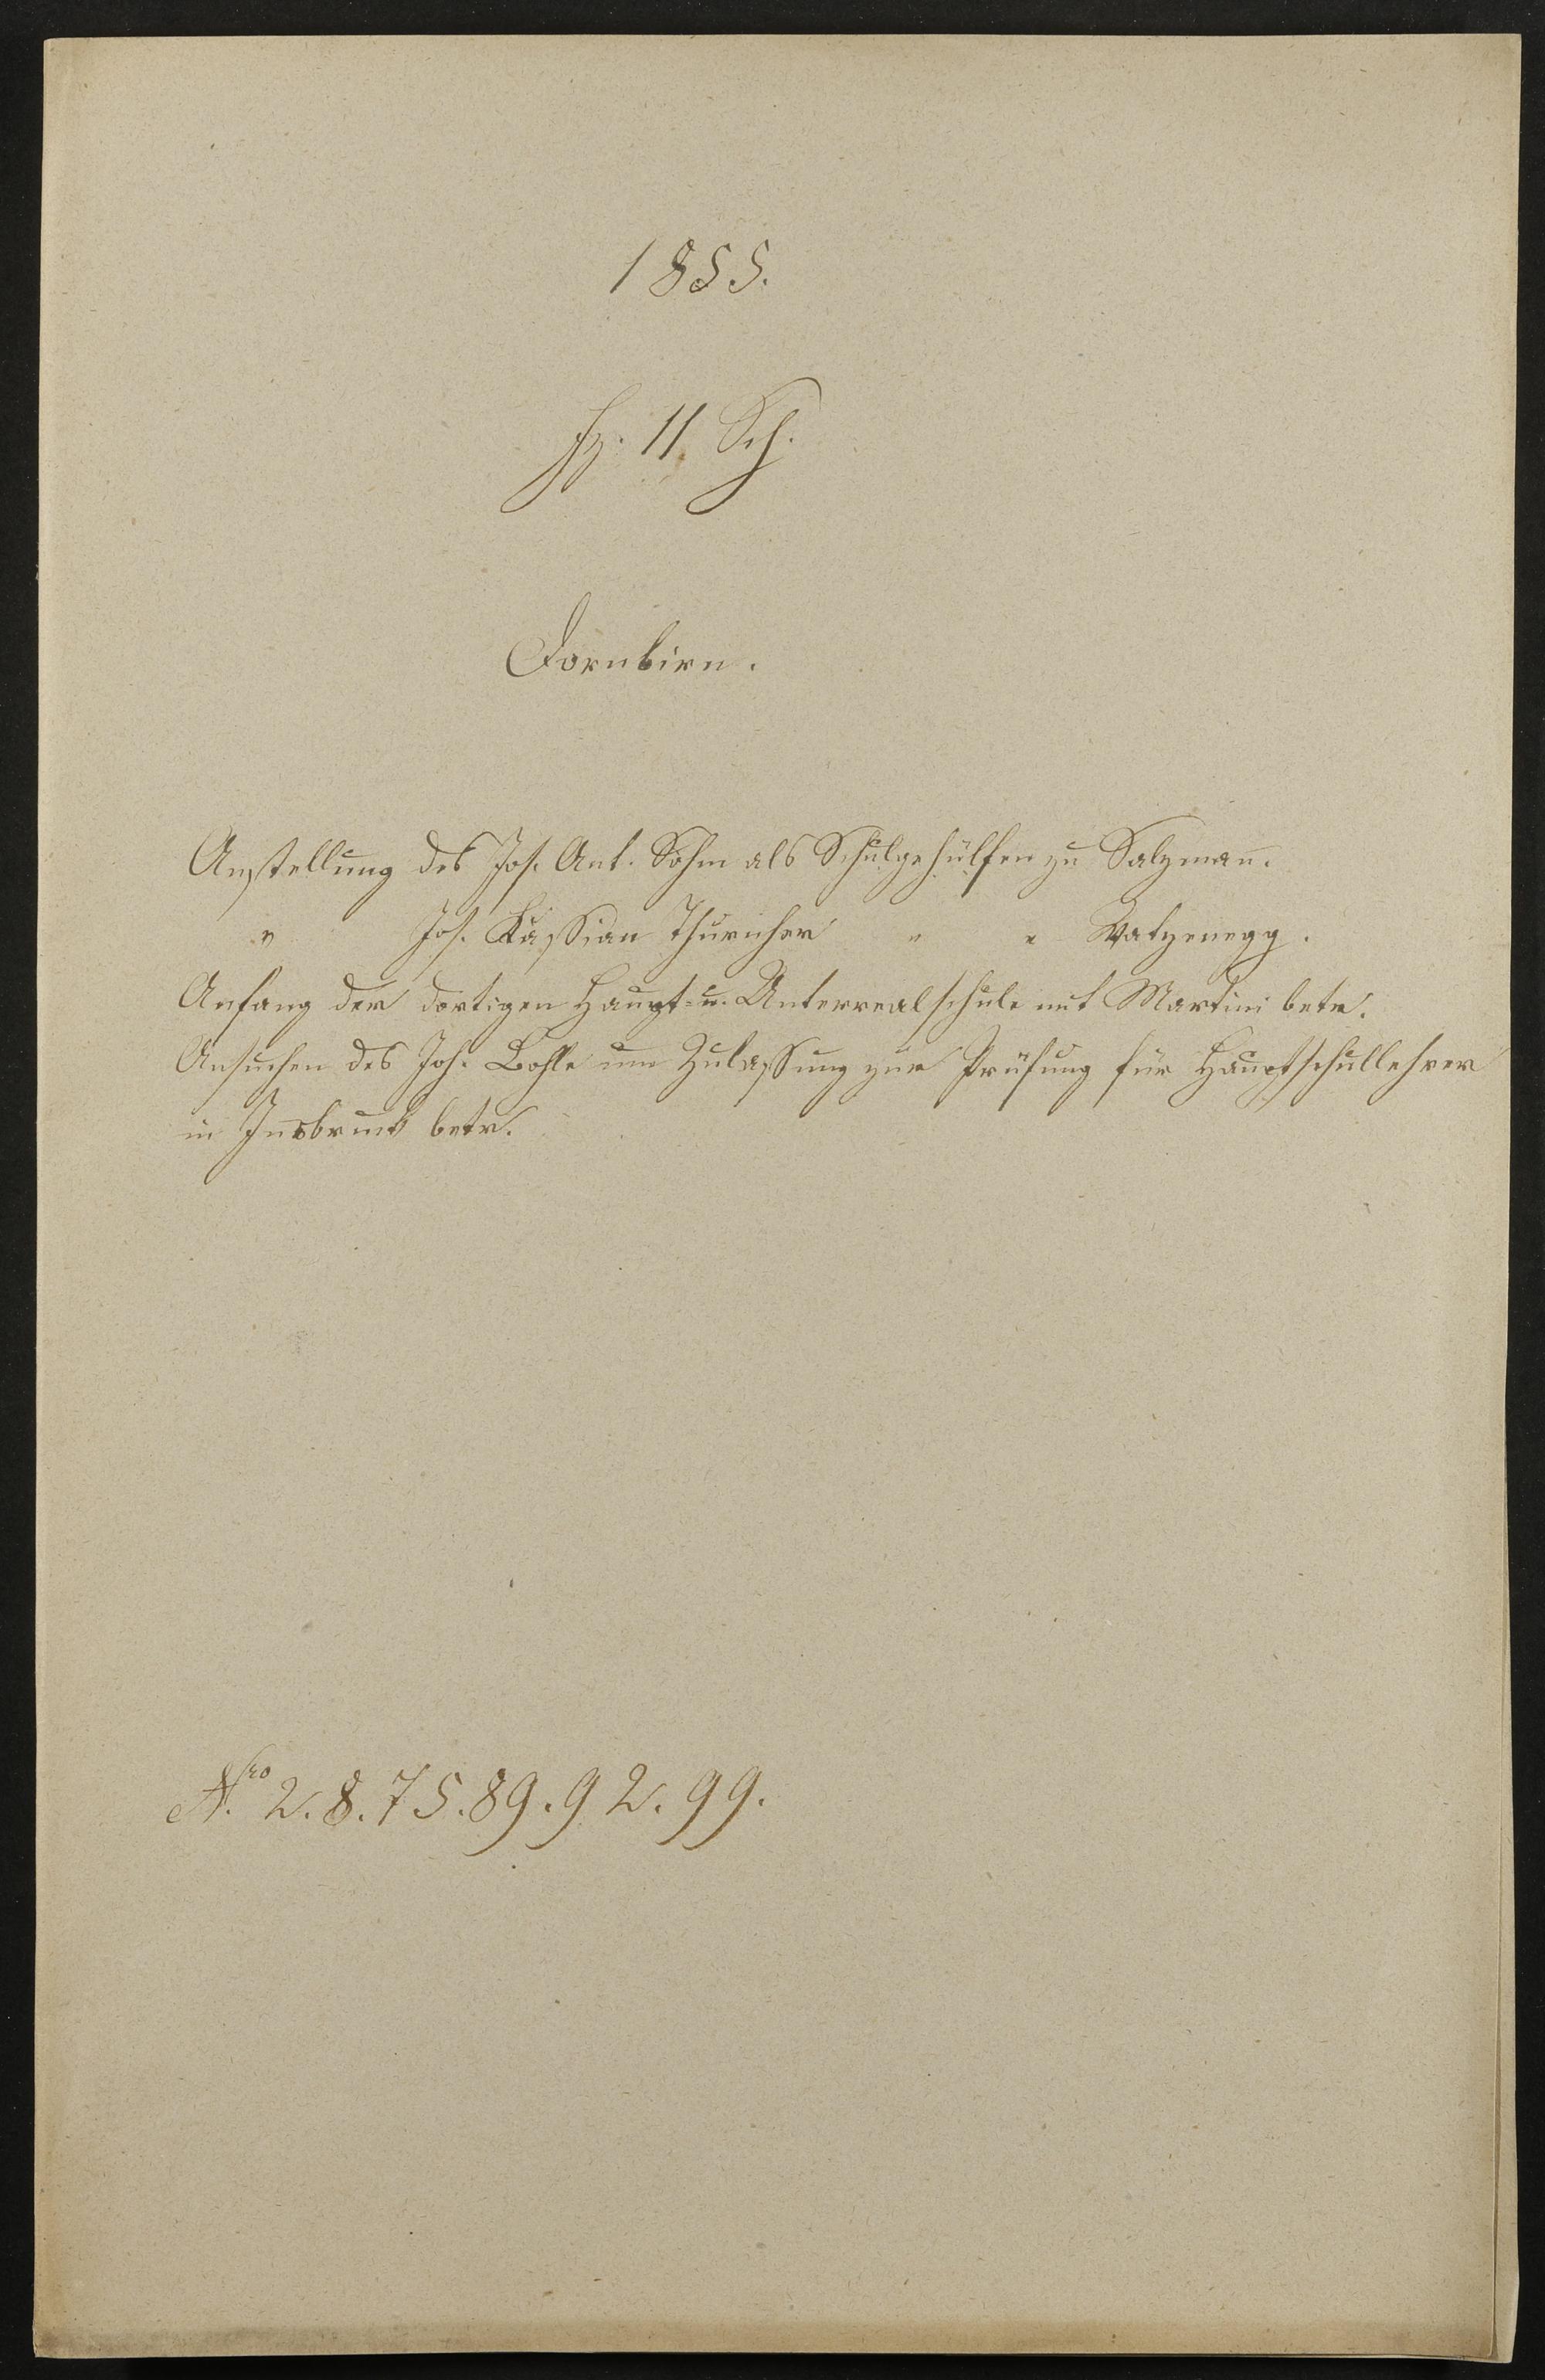 1855.
fz. 11 Sch.
Dornbirn.
Anstellung des Jos. Ant. Sohm als Schulgehülfen zu Salzman̄.
" Jos. Kassian Thurnher " " Watzenegg.
Anfang der dortigen Haupt- u. Unterrealschule mit Martini betr.
Ansuchen des Joh. Bohle um Zulassung zur Prüfung für Hauptschullehrer
in Insbruck betr.
Nro 2. 8. 75. 89. 92. 99.